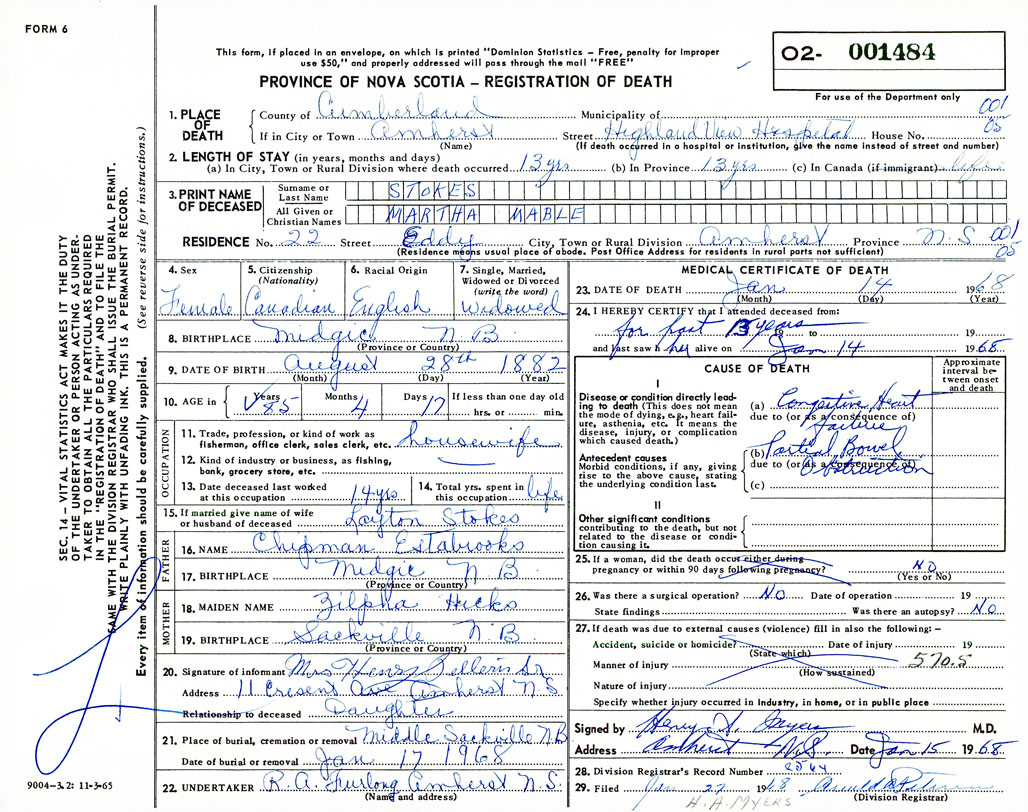 FORM 6
This form, if placed in an envelope, on which is printed "Dominion Statistics – Free, penalty for improper
use $50," and properly addressed will pass through the mail "FREE"
O2- 001484
PROVINCE OF NOVA SCOTIA – REGISTRATION OF DEATH
For use of the Department only
001
05
1. PLACE OF DEATH
County of Cumberland Municipality of
If in City or Town Amherst Street Highland View Hospital House No.
(Name) (If death occurred in a hospital or institution, give the name instead of street and number)
2. LENGTH OF STAY (in years, months and days)
(a) In City, Town or Rural Division where death occurred 13 yrs (b) In Province 13 yrs (c) In Canada (if immigrant) life
3. PRINT NAME OF DECEASED
Surname or Last Name STOKES
All Given or Christian Names MARTHA MABLE
RESIDENCE No. 22 Street Eddy City, Town or Rural Division Amherst Province N.S 001
05
(Residence means usual place of abode. Post Office Address for residents in rural parts not sufficient)
4. Sex
Female
5. Citizenship
(Nationality)
Canadian
6. Racial Origin
English
7. Single, Married,
Widowed or Divorced
(write the word)
Widowed
8. BIRTHPLACE Midgic N B
(Province or Country)
9. DATE OF BIRTH August 28th 1882
(Month) (Day) (Year)
10. AGE in Years 85 Months 4 Days 17 If less than one day old
hrs. or min.
OCCUPATION
11. Trade, profession, or kind of work as
fishermen, office clerk, sales clerk, etc. housewife
12. Kind of industry or business, as fishing,
bank, grocery store, etc.
13. Date deceased last worked
at this occupation 14 yrs
14. Total yrs. spent in
this occupation life
15. If married give name of wife
or husband of deceased Layton Stokes
FATHER
16. NAME Chipman Estabrooks
17. BIRTHPLACE Midgic N B
(Province or Country)
MOTHER
18. MAIDEN NAME Zilpha Hicks
19. BIRTHPLACE Sackville N.B
(Province or Country)
20. Signature of informant Mrs Henry
Address 11 Cresent Ave Amherst N.S
Relationship to deceased Daughter
21. Place of burial, cremation or removal Middle Sackville N.B
Date of burial or removal Jan 17 1968
22. UNDERTAKER R.A. Furlong Amherst N.S.
(Name and address)
MEDICAL CERTIFICATE OF DEATH
23. DATE OF DEATH Jan 14 1968
(Month) (Day) (Year)
24. I HEREBY CERTIFY that I attended deceased from:
for past 13 years to 19
and last saw h er alive on Jan 14 1968
CAUSE OF DEATH
Approximate
interval be-
tween onset
and death
I
Disease or condition directly lead-
ing to death (This does not mean
the mode of dying, e.g., heart fail-
ure, asthenia, etc. It means the
disease, injury, or complication
which caused death.)
(a) Congestive Heart
due to (or as a consequence of)
failure
Antecedent causes
Morbid conditions, if any, giving
rise to the above cause, stating
the underlying condition last.
(b) Partial Bowel
due to (or as a consequence of)
Obstruction
(c)
II
Other significant conditions
contributing to the death, but not
related to the disease or condi-
tion causing it.
25. If a woman, did the death occur either during
pregnancy or within 90 days following pregnancy? NO
(Yes or No)
26. Was there a surgical operation? No Date of operation 19
State findings Was there an autopsy? No
27. If death was due to external causes (violence) fill in also the following: –
Accident, suicide or homicide? Date of injury 19
(State which)
Manner of injury 570.5
(How sustained)
Nature of injury
Specify whether injury occurred in Industry, in home, or in public place
Signed by Henry Myers M.D.
Address Amherst N.S. Date Jan 15 1968
28. Division Registrar's Record Number
29. Filed Jan 27 1968
(Division Registrar)
H. A. MYERS
SEC. 14 – VITAL STATISTICS ACT MAKES IT THE DUTY
OF THE UNDERTAKER OR PERSON ACTING AS UNDER-
TAKER TO OBTAIN ALL THE PARTICULARS REQUIRED
IN THE "REGISTRATION OF DEATH" AND TO FILE THE
SAME WITH THE DIVISION REGISTRAR WHO SHALL ISSUE THE BURIAL PERMIT.
WRITE PLAINLY WITH UNFADING INK. THIS IS A PERMANENT RECORD.
Every item of information should be carefully supplied. (See reverse side for instructions.)
9004-3.2: 11-3-65